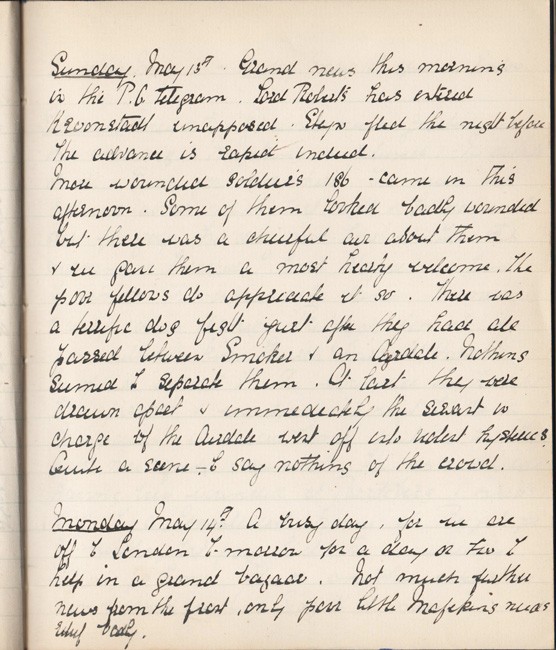 Sunday. May 13th. Grand news this morning
in the P.O telegram. Lord Roberts has entered
Kroonstadt unopposed. Steyn fled the night before
the advance is rapid indeed.
More wounded soldiers 186 - came in this
afternoon. Some of them looked badly wounded
but there was a cheerful air about them
& we gave them a most hearty welcome. The
poor fellows do appreciate it so. There was
a terrific dog fight just after they had all
passed between Smoker & an Airdale. Nothing
seemed to separate them. At last they were
drawn apart & immediately the servant in
charge of the Airdale went off into violent hysterics.
Quite a scene - to say nothing of the crowd.
Monday May 14th. A busy day, for we are
off to London to-morrow for a day or two to
help in a grand bazaar. Not much further
news from the front, only poor little Mafeking needs
relief badly.